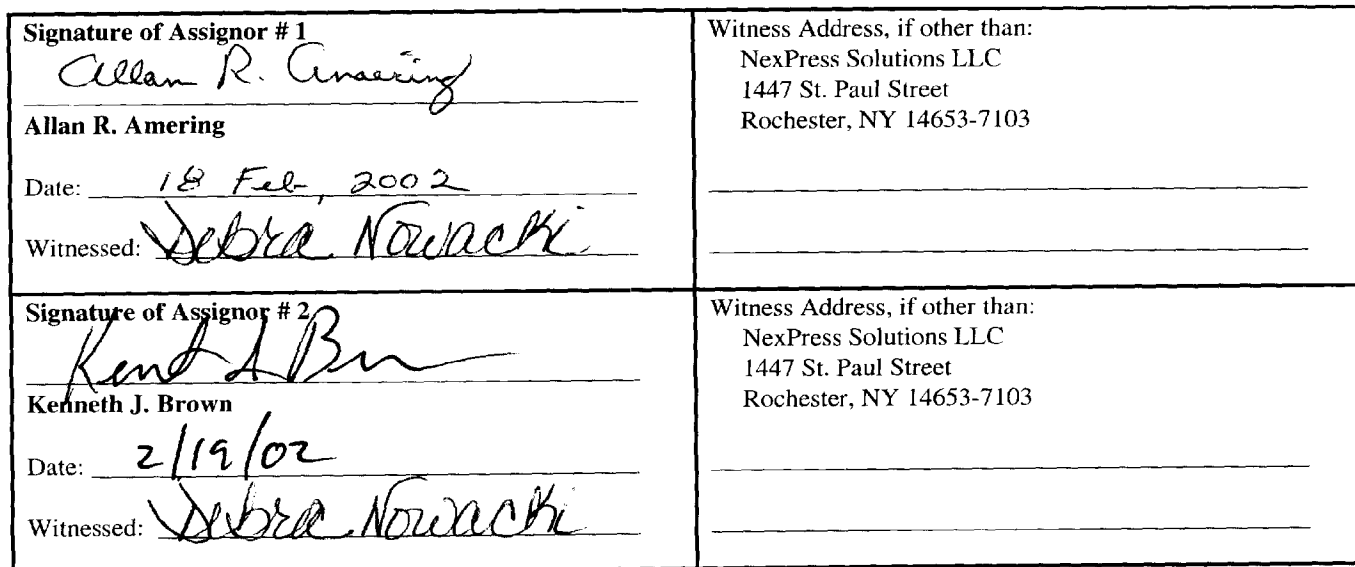 Signature of Assignor # 1
Allan R. Amering
Allan R. Amering
Date: 18 Feb, 2002
Witnessed: Debra Nowacki
Witness Address, if other than:
NexPress Solutions LLC
1447 St. Paul Street
Rochester, NY 14653-7103
Signature of Assignor # 2
Kenneth J. Brown
Date: 2/19/02
Witnessed: Debra Nowacki
Witness Address, if other than:
NexPress Solutions LLC
1447 St. Paul Street
Rochester, NY 14653-7103